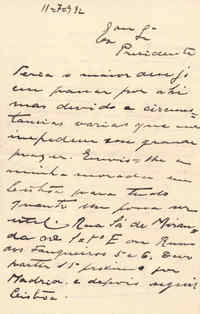 Exmo Sr
Presidente
Teria o maior desejo
em passar por ahi
mas devido a circuns
tancias varias que me
impedem esse grande
prazer. Envio-lhe a
minha morada em
Lisboa para tudo
quanto lhe possa ser
util Rua Sá de Miran
da
dos Fanqueiros 5 a 6.
partir 15 proximo por
Madrid e depois seguir
Lisboa.